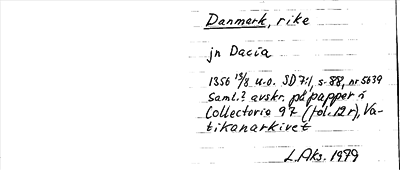 Danmark, rike
jn Dacia
1356 15/8 u.o. SD 7:1, s. 88, nr 5639
Saml.? avskr. på papper i
Collectorie 97 (fol. 12 r), Va-
tikanarkivet
L. Aks. 1979